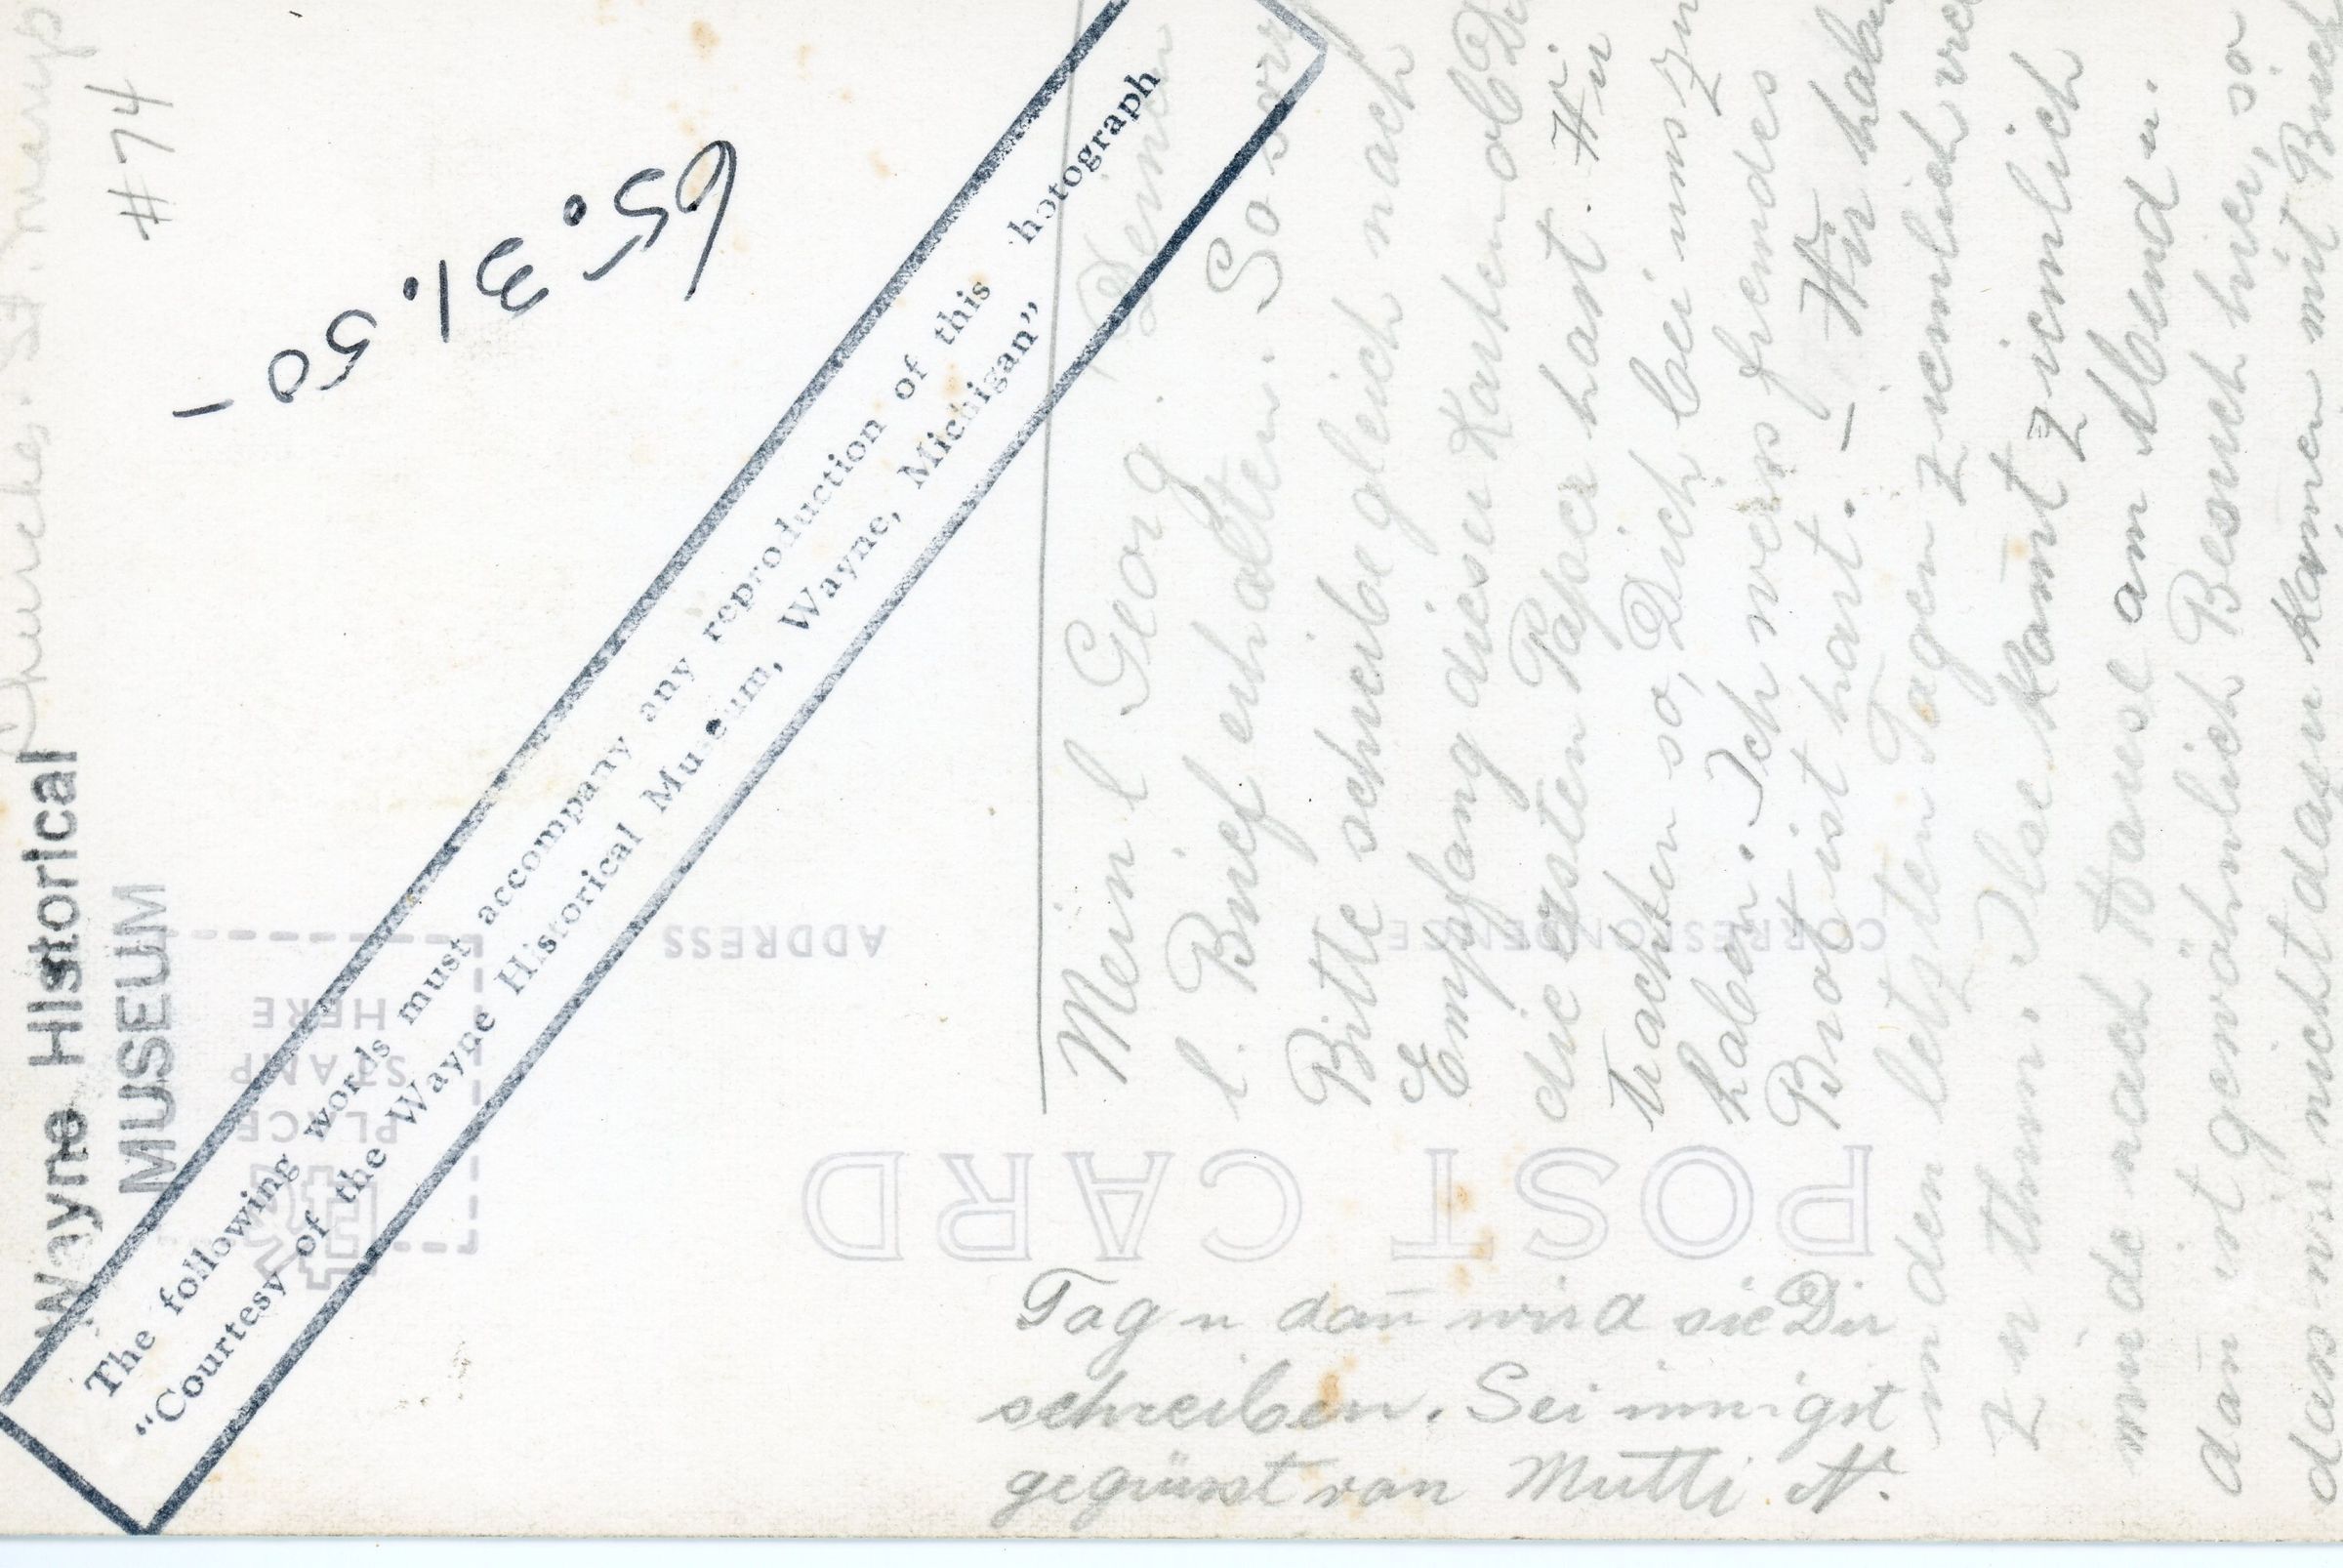 Churches. St. Marys
#74
Wayne Historical
MUSEUM
65: 31. 50 -
The following words must accompany any reproduction of this hotograph
"Courtesy of the Wayne Historical Museum, Wayne, Michigan"
POST CARD
ADDRESS
CORRESPONDENCE
PLACE
STAMP
HERE
Mein l Georg. Deinen
l. Brief erhalten. So
Bitte schreibe gleich nach
Empfang dieser Karten ob
die ersten Papier hast. Wir
trachten so, Dich bei uns zu
haben. Ich weiss fremdes
Brot ist hart. - Wir haben
in den letzten Tagen ziemlich
zu thun. Ilse kamt ziemlich
müde nach Hause am Abend u.
dan̄ ist gewöhnlich Besuch hier, so
dass wir nicht dazu kamen mit
Tag u dan̄ wird sie Dir
schreiben. Sei innigst
gegrüsst von Mutti N.